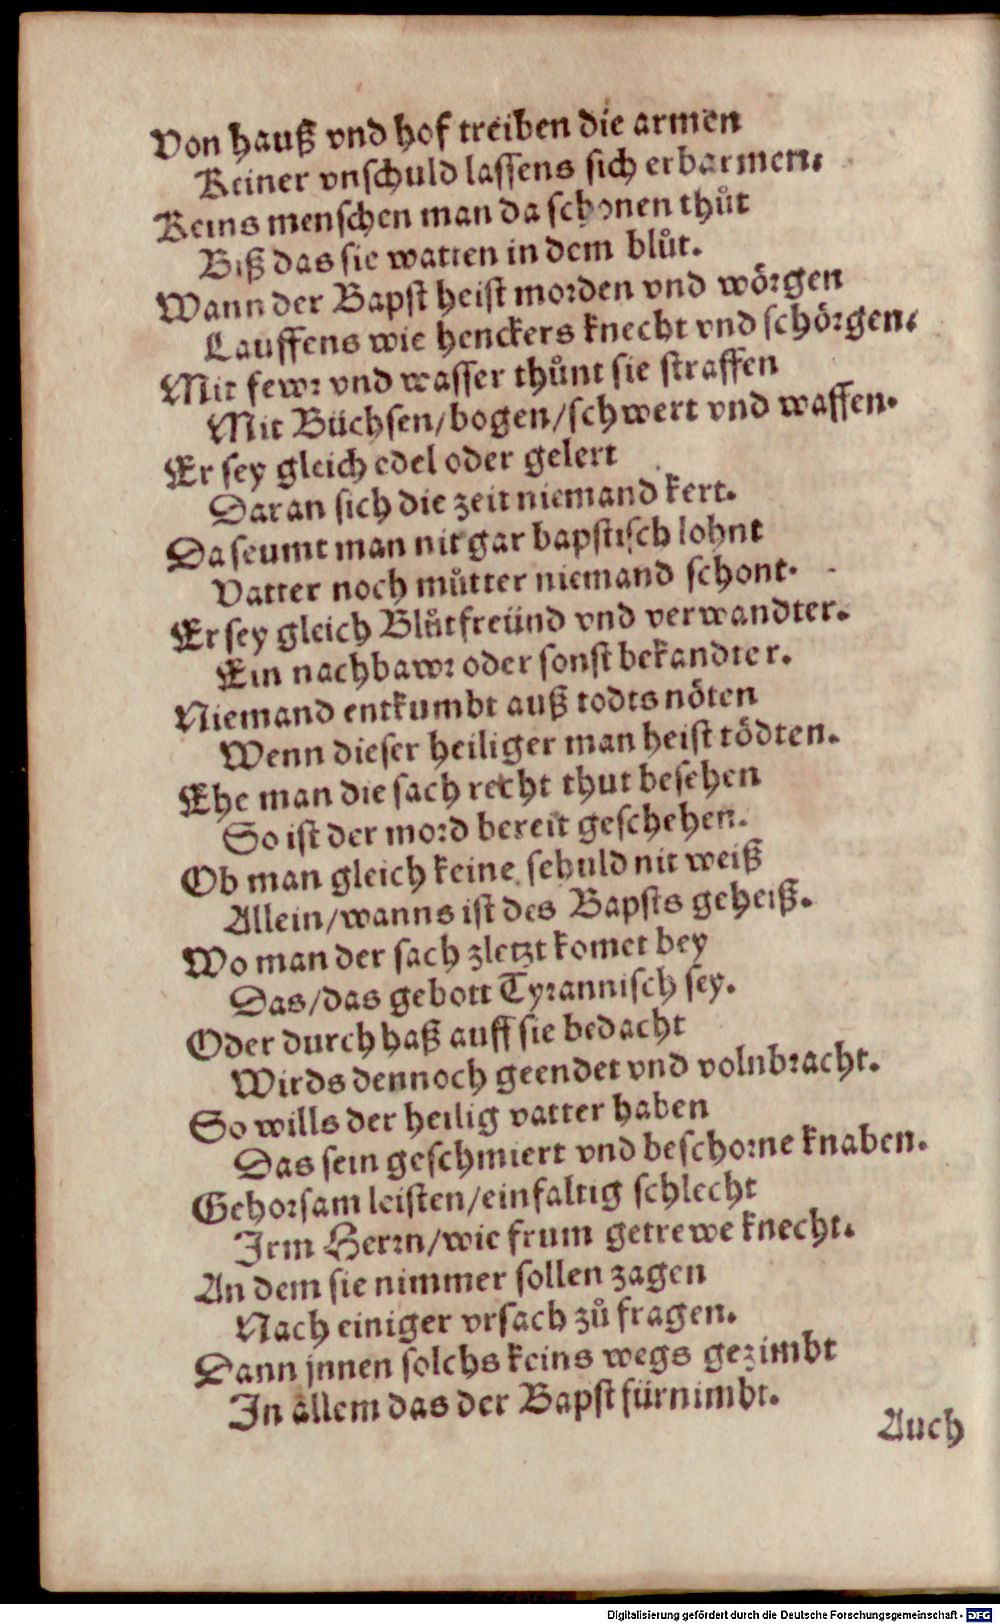 Von hauß vnd hof treiben die armen
Keiner vnschuld lassens sich erbarmen.
Keins menschen man da schonen thůt
Biß das sie watten in dem blůt.
Wann der Bapst heist morden vnd wörgen
Lauffens wie henckers knecht vnd schörgen.
Mit fewr vnd wasser thůnt sie straffen
Mit Büchsen/bogen/schwert vnd waffen.
Er sey gleich edel oder gelert
Daran sich die zeit niemand kert.
Da seumt man nit gar bapstisch lohnt
Vatter noch můtter niemand schont.
Er sey gleich Blůtfreünd vnd verwandter.
Ein nachbawr oder sonst bekandter.
Niemand entkumbt auß todts nöten
Wenn dieser heiliger man heist tödten.
Ehe man die sach recht thut besehen
So ist der mord bereit geschehen.
Ob man gleich keine schuld nit weiß
Allein/wanns ist des Bapsts geheiß.
Wo man der sach zletzt komet bey
Das/das gebott Tyrannisch sey.
Oder durch haß auff sie bedacht
Wirds dennoch geendet vnd volnbracht.
So wills der heilig vatter haben
Das sein geschmiert vnd beschorne knaben.
Gehorsam leisten/einfaltig schlecht
Irm Herrn/wie frum getrewe knecht.
An dem sie nimmer sollen zagen
Nach einiger vrsach zů fragen.
Dann jnnen solchs keins wegs gezimbt
In allem das der Bapst fürnimbt.
Auch
Digitalisierung gefördert durch die Deutsche Forschungsgemeinschaft - DFG